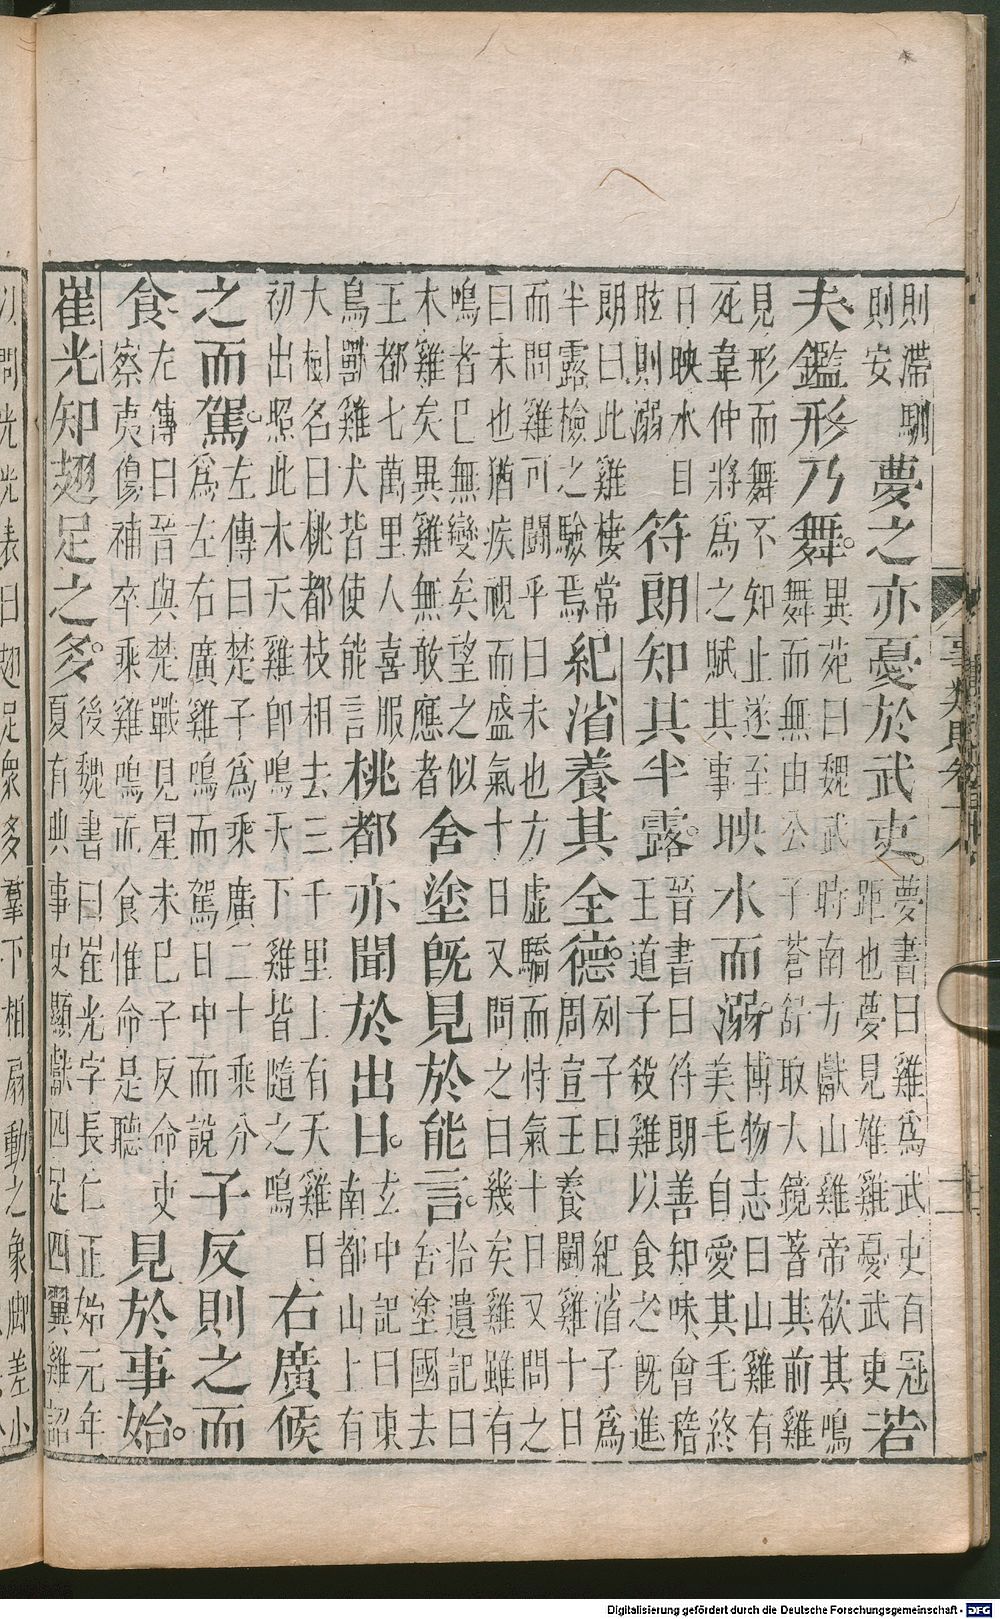 則滯馴則安夢之亦憂於武吏。夢書曰雞爲武吏百冠距也夢見雄雞憂武吏若
夫鑑形乃舞。異苑曰魏武時南方獻山雞帝欲其鳴舞而無由公子蒼舒取大鏡著其前雞
見形而舞不知止遂至死韋仲將爲之賦其事映水而溺。博物志曰山雞有美毛自愛其毛終
日映水目眩則溺符朗知其半露。晉書曰符朗善知味曾稽王道子殺雞以食之既進
朗曰此雞棲常半露檢之驗焉紀渻養其全德。列子曰紀渻子爲周宣王養鬬雞十日
而問雞可鬬乎曰未也方虛驕而恃氣十日又問之曰未也猶疾視而盛氣十日又問之曰幾矣雞雖有
鳴者已無變矣望之似木雞矣異雞無敢應者舍塗既見於能言。拾遺記曰舍塗國去
王都七萬里人喜服鳥獸雞犬皆使能言桃都亦聞於出日。玄中記曰東南都山上有
大樹名曰桃都枝相去三千里上有天雞日初出照此木天雞卽鳴天下雞皆隨之鳴右廣候
之而駕。左傳曰楚子爲乘廣二十乘分爲左右廣雞鳴而駕日中而說子反則之而
食。左傳曰晉與楚戰見星未已子反命吏察夷傷補卒乘雞鳴而食惟命是聽見於事始。
崔光知翅足之多。後魏書曰崔光字長仁正始元年夏有典事史顯獻四足四翼雞詔
以問光光表曰翅足衆多羣下相扇動之象脚差小
Digitalisierung gefördert durch die Deutsche Forschungsgemeinschaft - DFG